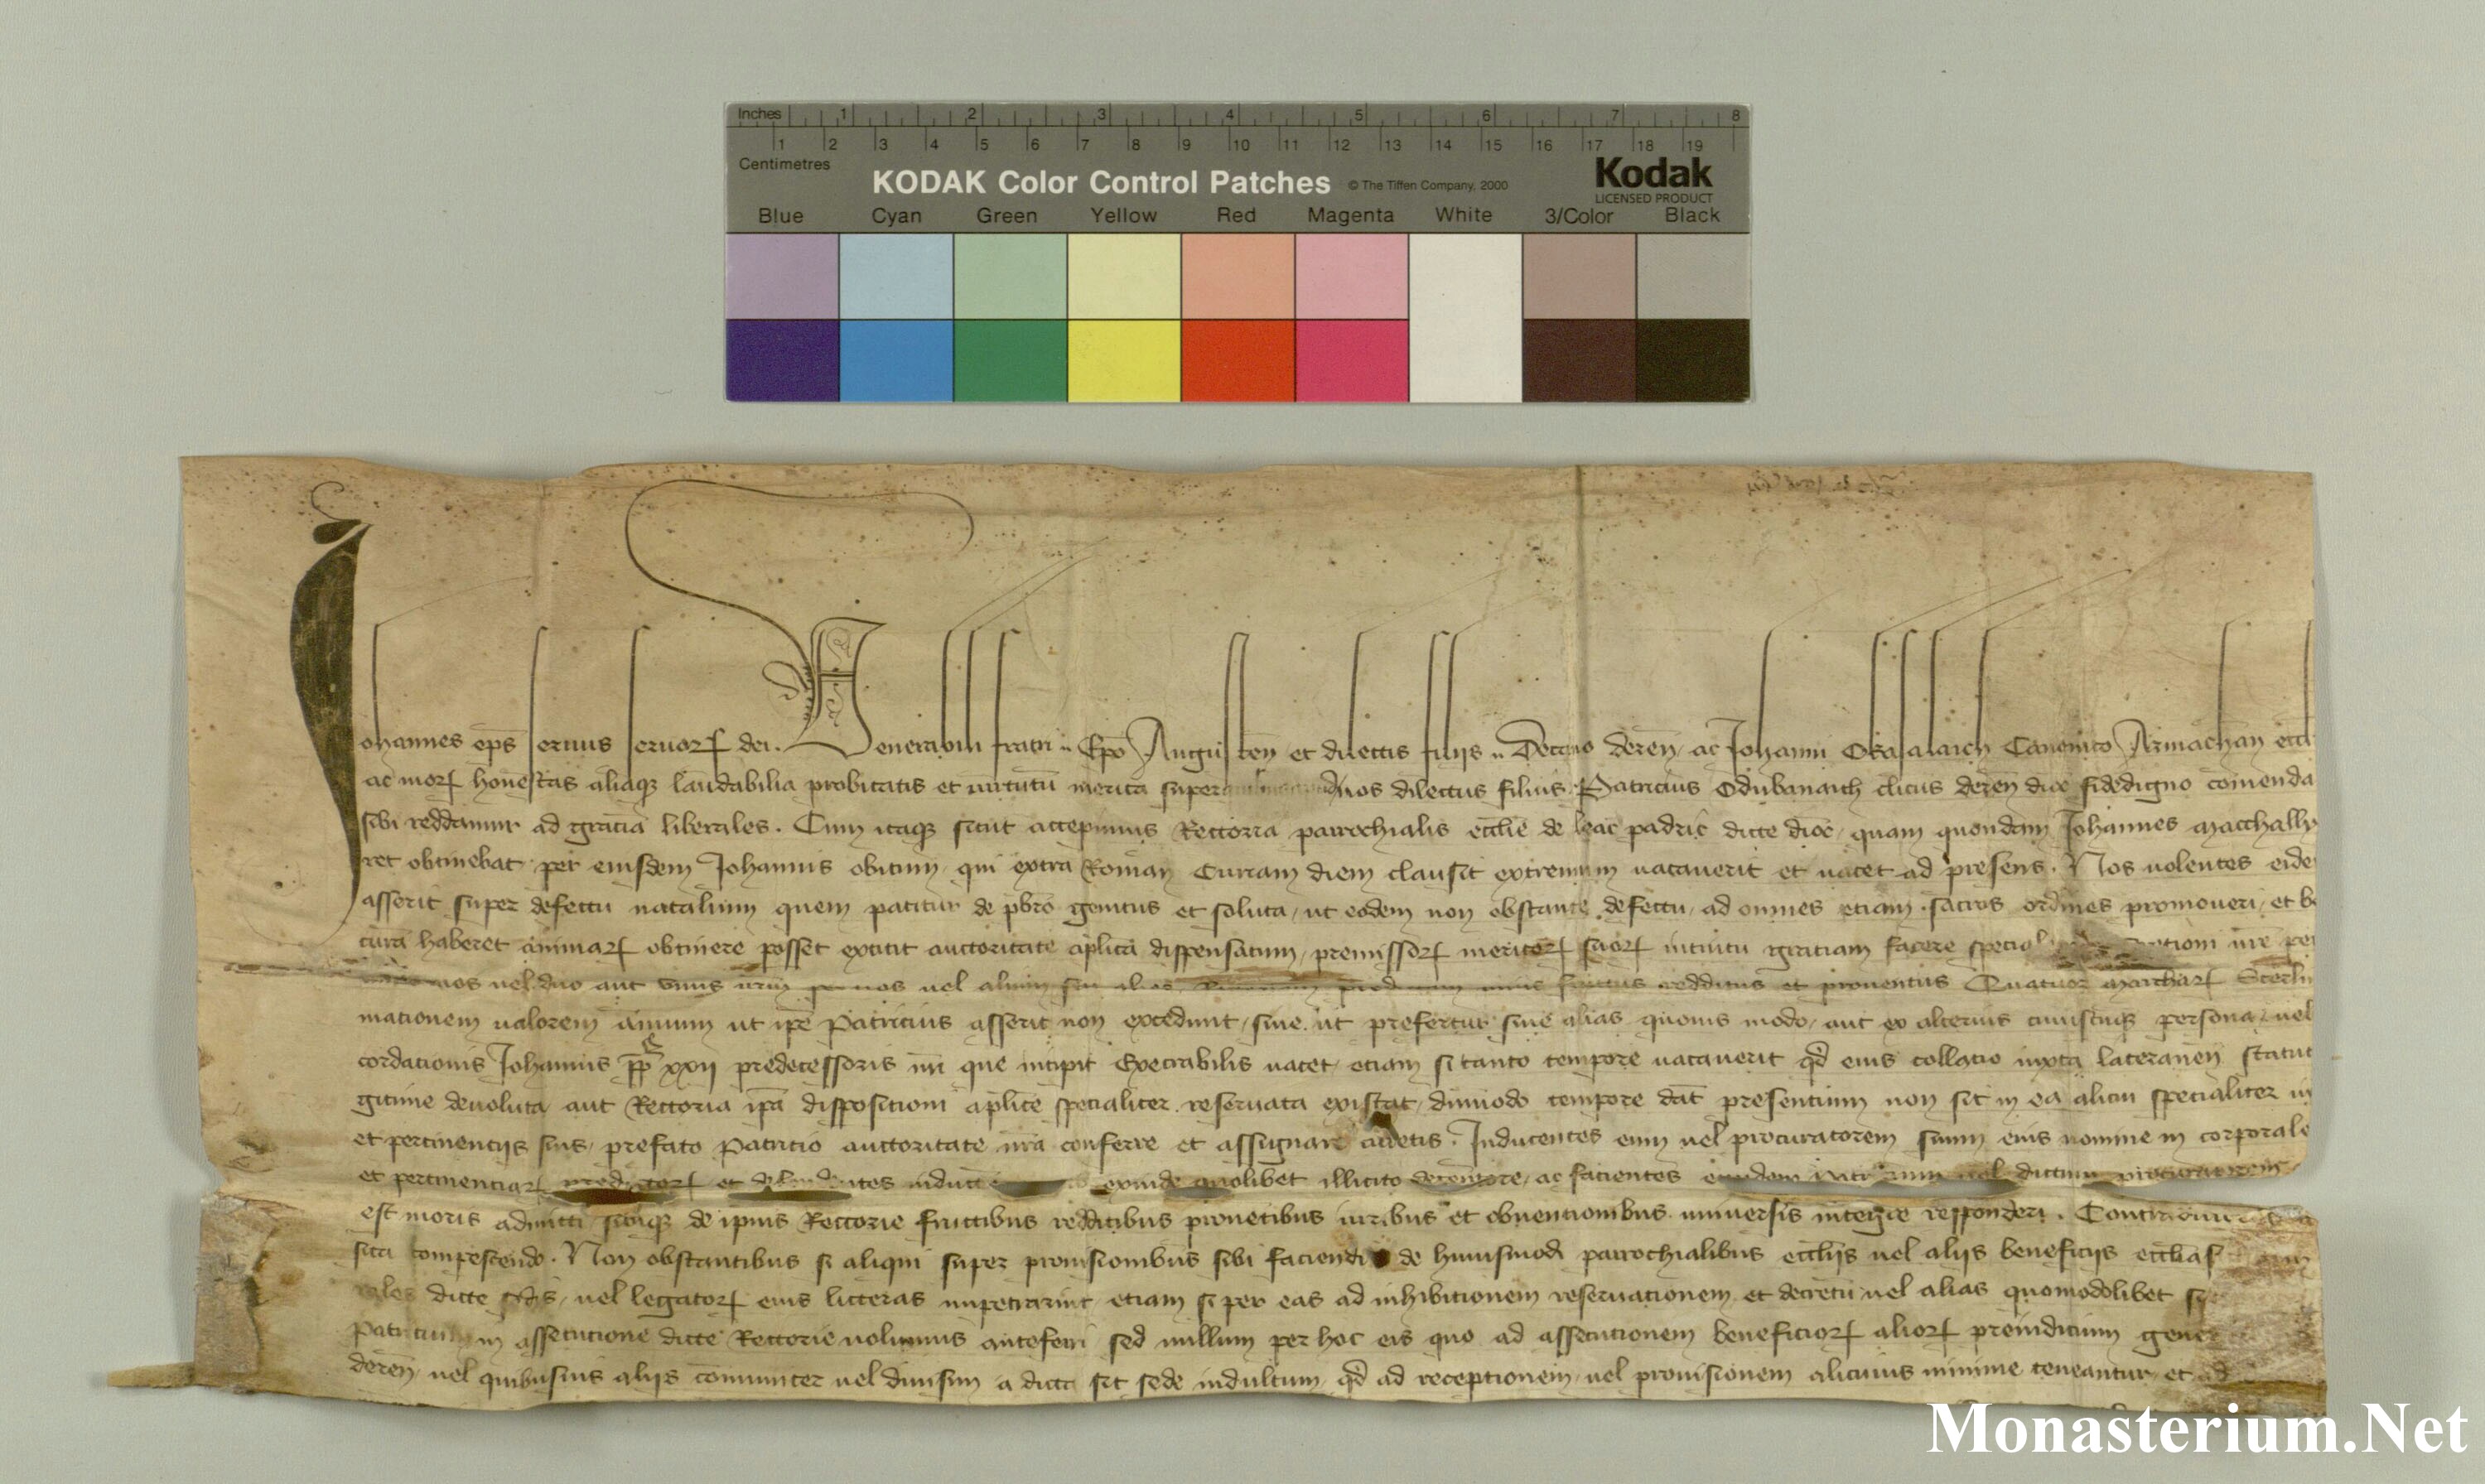 Inches 1 2 3 4 5 6 7 8
1 2 3 4 5 6 7 8 9 10 11 12 13 14 15 16 17 18 19
Centimetres
KODAK Color Control Patches © The Tiffen Company, 2000 Kodak
LICENSED PRODUCT
Blue Cyan Green Yellow Red Magenta White 3/Color Black
Johannes ep̄s seruus seruoꝝ dei. Venerabili fratri .. Ep̄o Augusten̄ et dilectis filijs .. Decano deren̄ ac Johanni Canonico Armachan̄ eccl
ac moꝝ honestas aliaqꝫ laudabilia probitatis et uirtutū merita super dilectus filius Patricius Odubanaich cl̄icus deren̄ dioc̄ fidedigno cōmenda
sibi reddamur ad gratiā liberales. Cum itaqꝫ sicut accepimus Rectoria parrochialis eccl̄ie de leac padric dicte dioc̄ quam quondam Johannes macchally
ret obtinebat per eiusdem Johannis obitum qui extra Roman̄ Curiam diem clausit extremum uacauerit et uacet ad presens. Nos uolentes eide
asserit super defectu natalium quem patitur de pb̄ro genitus et soluta, ut eodem non obstante defectu, ad omnes etiam sacros ordines promoueri, et b
cura haberet animaꝝ obtinere posset extitit auctoritate ap̄lica dispensatum, premissoꝝ meritoꝝ suoꝝ intuitu gratiam facere special nr̄e per
uos uel duo aut unus ur̄m uos uel alium seu alios fructus redditus et prouentus Quatuor marchaꝝ Sterlin
mationem ualorem annuum ut ip̄e Patricius asserit non excedunt, siue ut prefertur siue alias quouis modo, aut ex alterius cuiuscunqꝫ persona, uel
cordationis Johannis pp̄e xxij predecessoris nr̄i que incipit Execrabilis uacet, etiam si tanto tempore uacauerit qd̄ eius collatio iuxta lateranen̄ statut
gitime deuoluta aut Rectoria ip̄a dispositioni ap̄lice specialiter reseruata existat, dūmodo tempore dat̄ presentium non sit in ea alicui specialiter iu
et pertinentijs suis, prefato Patricio auctoritate nr̄a conferre et assignare curetis. Inducentes eum uel procuratorem suum eius nomine in corporale
et pertinentiaꝝ predictoꝝ et inductū exinde quolibet illicito detentore, ac facientes eundem Patricium uel dictum procuratorem
est moris admitti sibiqꝫ de ipsius Rectorie fructibus redditibus prouentibus iuribus et obuentionibus uniuersis integre responderi. Contradictores
sita compescendo. Non obstantibus si aliqui super prouisionibus sibi faciendis de huiusmodi parrochialibus eccl̄ijs uel alijs beneficijs eccl̄ias
rales dicte sedis, uel legatoꝝ eius litteras impetrarint etiam si per eas ad inhibitionem reseruationem et decretū uel alias quomodolibet
Patricium in assecutione dicte Rectorie uolumus anteferri sed nullum per hoc eis quo ad assecutionem beneficioꝝ alioꝝ preiudicium gene
deren̄ uel quibusuis alijs cōmuniter uel diuisim a dicta sit sede indultum qd̄ ad receptionem uel prouisionem alicuius minime teneantur et ad
Monasterium.Net